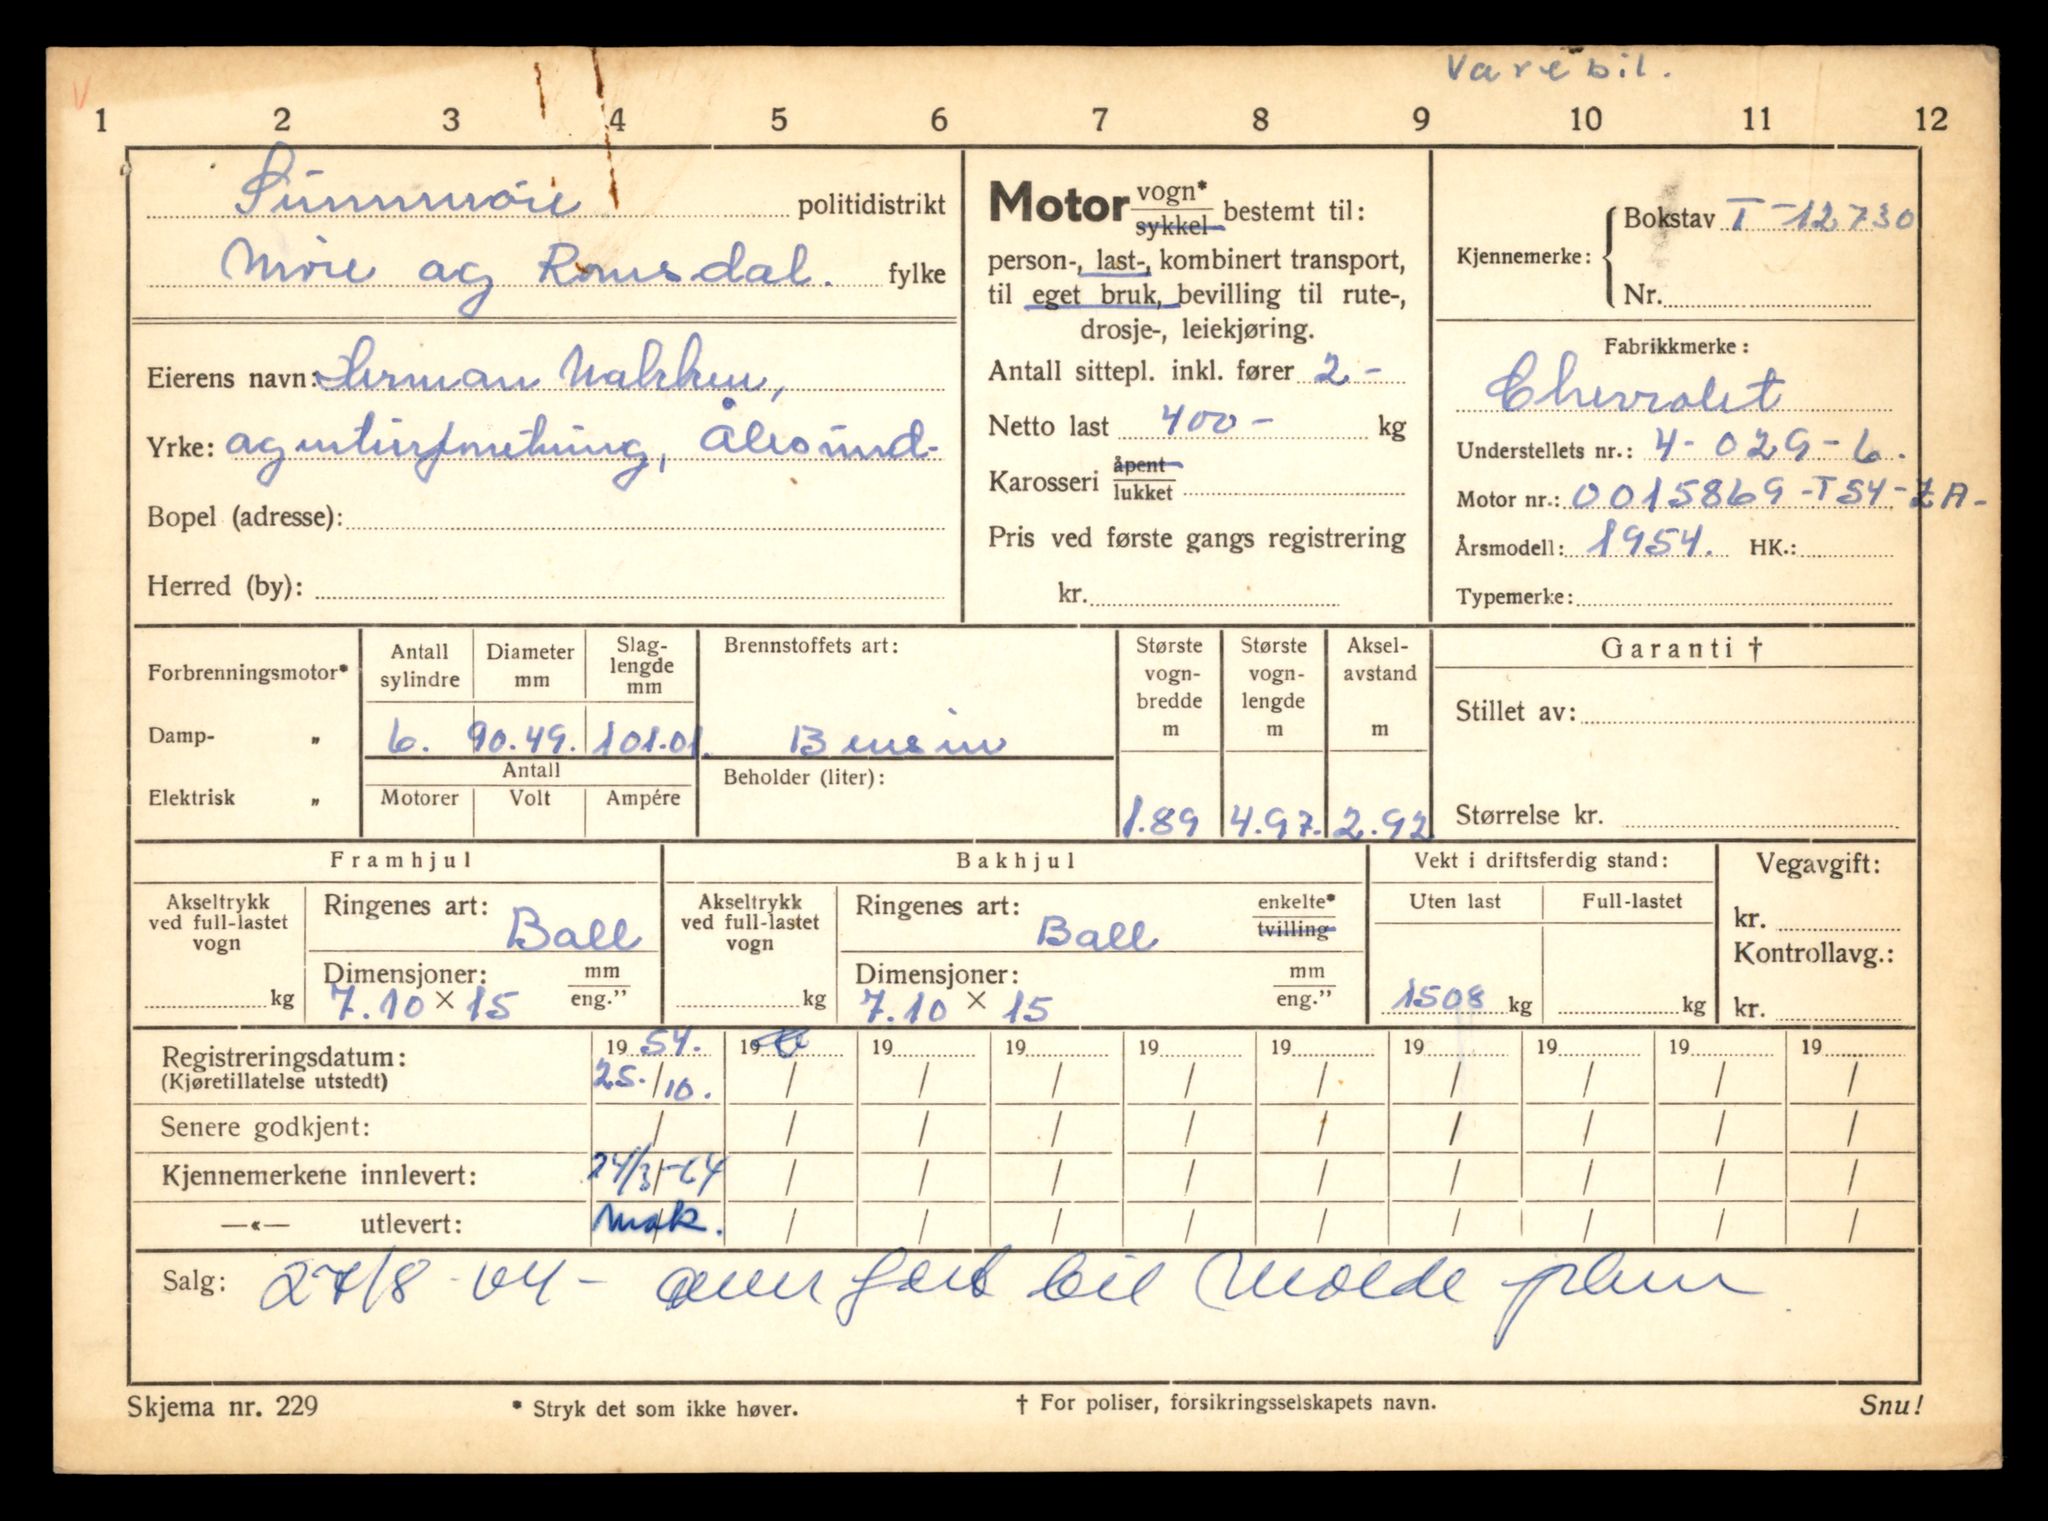 Varebil.
V
1 2 3 4 5 6 7 8 9 10 11 12
Sunnmøre politidistrikt
Møre og Romsdal. fylke
Eierens navn: Herman Nakken,
Yrke: agenturforretning, Ålesund-
Bopel (adresse):
Herred (by):
Motor vogn* sykkel bestemt til:
person-, last-, kombinert transport,
til eget bruk, bevilling til rute-,
drosje-, leiekjøring.
Antall sittepl. inkl. fører 2-
Netto last 400- kg
Karosseri åpent lukket
Pris ved første gangs registrering
kr.
Kjennemerke: Bokstav T-12730
Nr.
Fabrikkmerke:
Chevrolet
Understellets nr.: 4-029-6.
Motor nr.: 0015869-T54-ZA-
Årsmodell: 1954. HK.:
Typemerke:
Forbrenningsmotor*
Damp- „
Elektrisk „
Antall sylindre Diameter mm Slag-lengde mm
6. 90.49. 101.01.
Antall
Motorer Volt Ampére
Brennstoffets art:
Bensin
Beholder (liter):
Største vogn-bredde m Største vogn-lengde m Aksel-avstand m
1.89 4.97. 2.92
Garanti †
Stillet av:
Størrelse kr.
Framhjul
Akseltrykk ved full-lastet vogn
kg
Ringenes art: Ball
Dimensjoner: mm eng."
7.10 × 15
Bakhjul
Akseltrykk ved full-lastet vogn
kg
Ringenes art: Ball enkelte* tvilling
Dimensjoner: mm eng."
7.10 × 15
Vekt i driftsferdig stand:
Uten last Full-lastet
1508 kg kg
Vegavgift:
kr.
Kontrollavg.:
kr.
Registreringsdatum: 1954. 19 19 19 19 19 19 19 19 19
(Kjøretillatelse utstedt) 25./10. / / / / / / / / /
Senere godkjent: / / / / / / / / / /
Kjennemerkene innlevert: 24/3-64 / / / / / / / / /
—«— utlevert: Mak. / / / / / / / / /
Salg: 27/8-64- overført bil Molde pkm
Skjema nr. 229 * Stryk det som ikke høver. † For poliser, forsikringsselskapets navn. Snu!